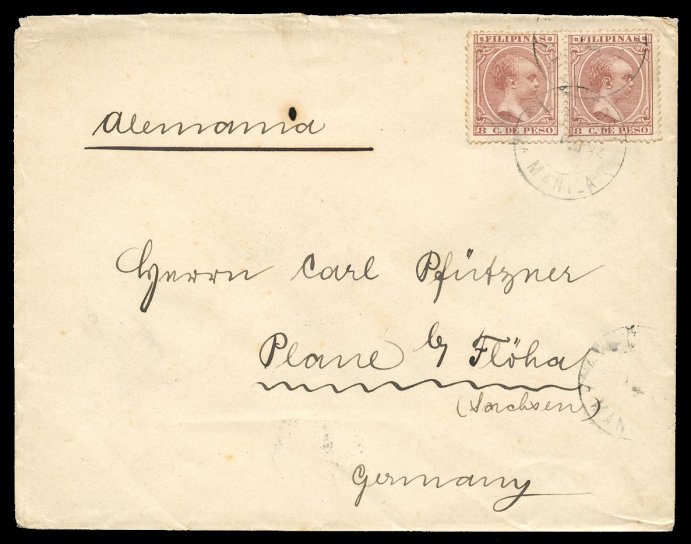 FILIPINAS FILIPINAS
8 C. DE PESO 8 C. DE PESO
MANILA
Alemania
Herrn Carl Pfützner
Plaue b/ Flöha
(Sachsen)
Germany